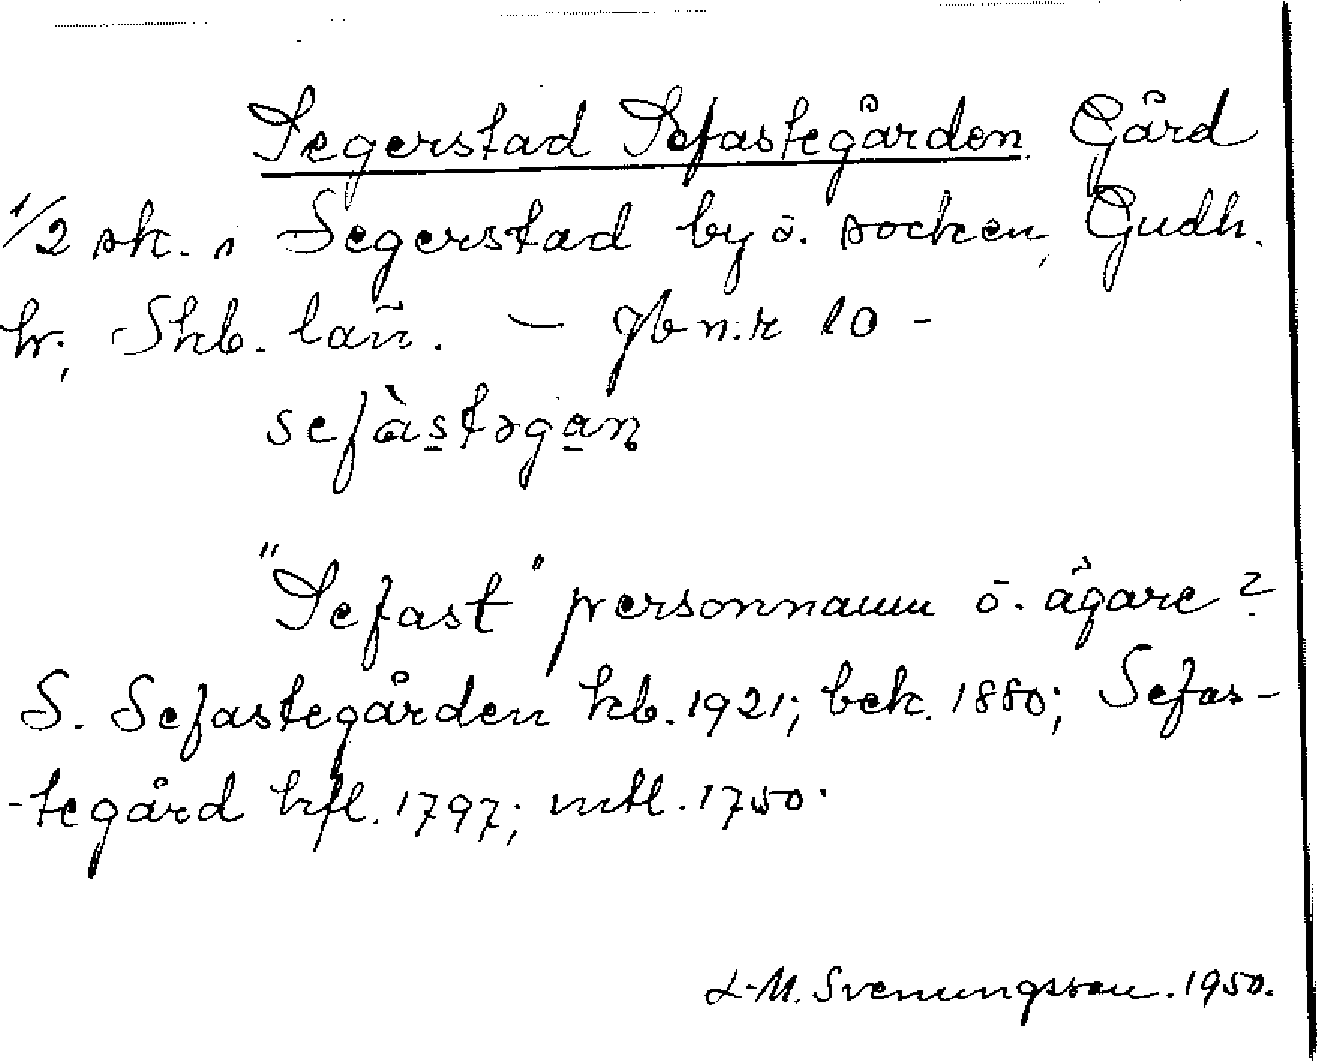 Segerstad Sefastegården. Gård
1/2 sk. i Segerstad by o. socken, Gudh.
hr, Skb. län. — jb n:r 10 -
sefàstəgan̥
"Sefast" personnamn o. ägare?
S. Sefastegården kb. 1921; bek. 1880; Sefas-
-tegård hfl. 1797; mtl. 1750.
L-M. Svenungsson. 1950.